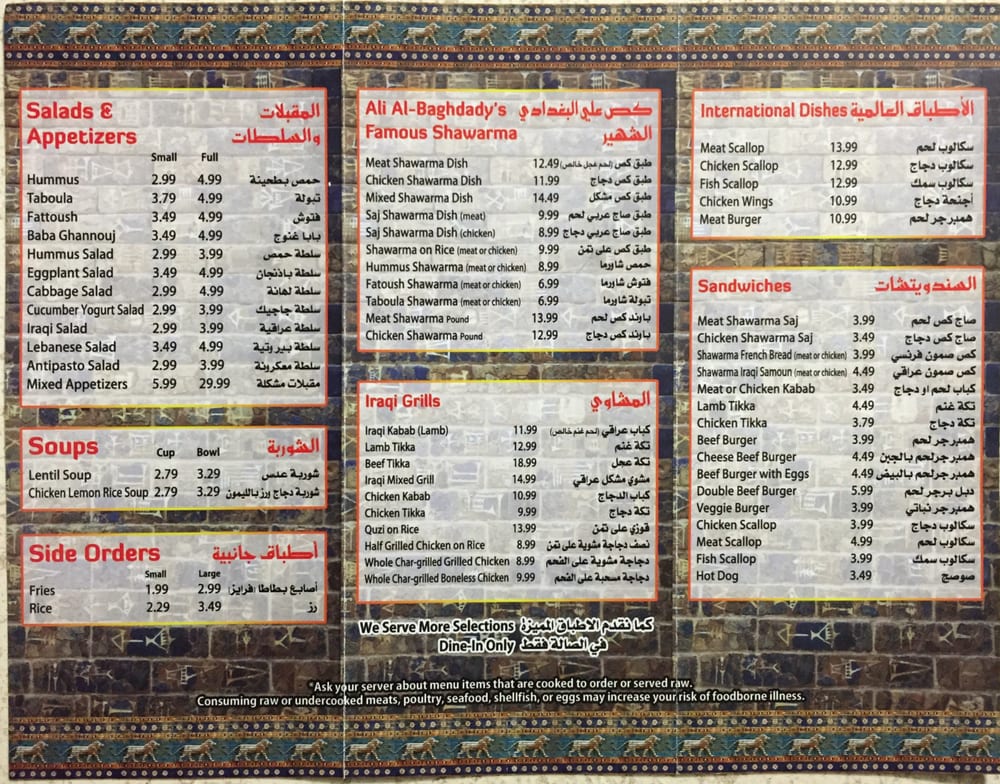 Salads & المقبلات
Appetizers والسلطات
Small Full
Hummus 2.99 4.99 حمص بطحينة
Taboula 3.79 4.99 تبولة
Fattoush 3.49 4.99 فتوش
Baba Ghannouj 3.49 4.99 بابا غنوج
Hummus Salad 2.99 3.99 سلطة حمص
Eggplant Salad 3.49 4.99 سلطة باذنجان
Cabbage Salad 2.99 4.99 سلطة لهانة
Cucumber Yogurt Salad 2.99 3.99 سلطة جاجيك
Iraqi Salad 2.99 3.99 سلطة عراقية
Lebanese Salad 3.49 4.99 سلطة بيروتية
Antipasto Salad 2.99 3.99 سلطة معكرونة
Mixed Appetizers 5.99 29.99 مقبلات مشكلة
Soups Cup Bowl الشوربة
Lentil Soup 2.79 3.29 شوربة عدس
Chicken Lemon Rice Soup 2.79 3.29 شوربة دجاج ورز بالليمون
Side Orders أطباق جانبية
Small Large
Fries 1.99 2.99 أصابع بطاطا افرايز
Rice 2.29 3.49 رز
Ali Al-Baghdady's كص علي البغدادي
Famous Shawarma الشهير
Meat Shawarma Dish 12.49 طبق كص (لحم عجل خالص)
Chicken Shawarma Dish 11.99 طبق كص دجاج
Mixed Shawarma Dish 14.49 طبق كص مشكل
Saj Shawarma Dish (meat) 9.99 طبق صاج عربي لحم
Saj Shawarma Dish (chicken) 8.99 طبق صاج عربي دجاج
Shawarma on Rice (meat or chicken) 9.99 طبق كص على تمن
Hummus Shawarma (meat or chicken) 8.99 حمص شاورما
Fatoush Shawarma (meat or chicken) 6.99 فتوش شاورما
Taboula Shawarma (meat or chicken) 6.99 تبولة شاورما
Meat Shawarma Pound 13.99 باوند كص لحم
Chicken Shawarma Pound 12.99 باوند كص دجاج
Iraqi Grills المشاوي
Iraqi Kabab (Lamb) 11.99 كباب عراقي (لحم غنم خالص)
Lamb Tikka 12.99 تكة غنم
Beef Tikka 18.99 تكة عجل
Iraqi Mixed Grill 14.99 مشوي مشكل عراقي
Chicken Kabab 10.99 كباب الدجاج
Chicken Tikka 9.99 تكة دجاج
Quzi on Rice 13.99 قوزي على تمن
Half Grilled Chicken on Rice 8.99 نصف دجاجة مشوية على تمن
Whole Char-grilled Grilled Chicken 8.99 دجاجة مشوية على الفحم
Whole Char-grilled Boneless Chicken 9.99 دجاجة مسحبة على الفحم
We Serve More Selections كما نقدم الاطباق المميزة
Dine-In Only في الصالة فقط
International Dishes الأطباق العالمية
Meat Scallop 13.99 سكالوب لحم
Chicken Scallop 12.99 سكالوب دجاج
Fish Scallop 12.99 سكالوب سمك
Chicken Wings 10.99 أجنحة دجاج
Meat Burger 10.99 همبرجر لحم
Sandwiches السندويتشات
Meat Shawarma Saj 3.99 صاج كص لحم
Chicken Shawarma Saj 3.49 صاج كص دجاج
Shawarma French Bread (meat or chicken) 3.99 كص صمون فرنسي
Shawarma Iraqi Samoun (meat or chicken) 4.49 كص صمون عراقي
Meat or Chicken Kabab 3.49 كباب لحم او دجاج
Lamb Tikka 4.49 تكة غنم
Chicken Tikka 3.79 تكة دجاج
Beef Burger 3.99 همبرجر لحم
Cheese Beef Burger 4.49 همبرجرلحم بالجبن
Beef Burger with Eggs 4.49 همبرجرلحم بالبيض
Double Beef Burger 5.99 دبل برجر لحم
Veggie Burger 3.99 همبرجر نباتي
Chicken Scallop 3.99 سكالوب دجاج
Meat Scallop 4.99 سكالوب لحم
Fish Scallop 3.99 سكالوب سمك
Hot Dog 3.49 صوصج
*Ask your server about menu items that are cooked to order or served raw.
Consuming raw or undercooked meats, poultry, seafood, shellfish, or eggs may increase your risk of foodborne illness.